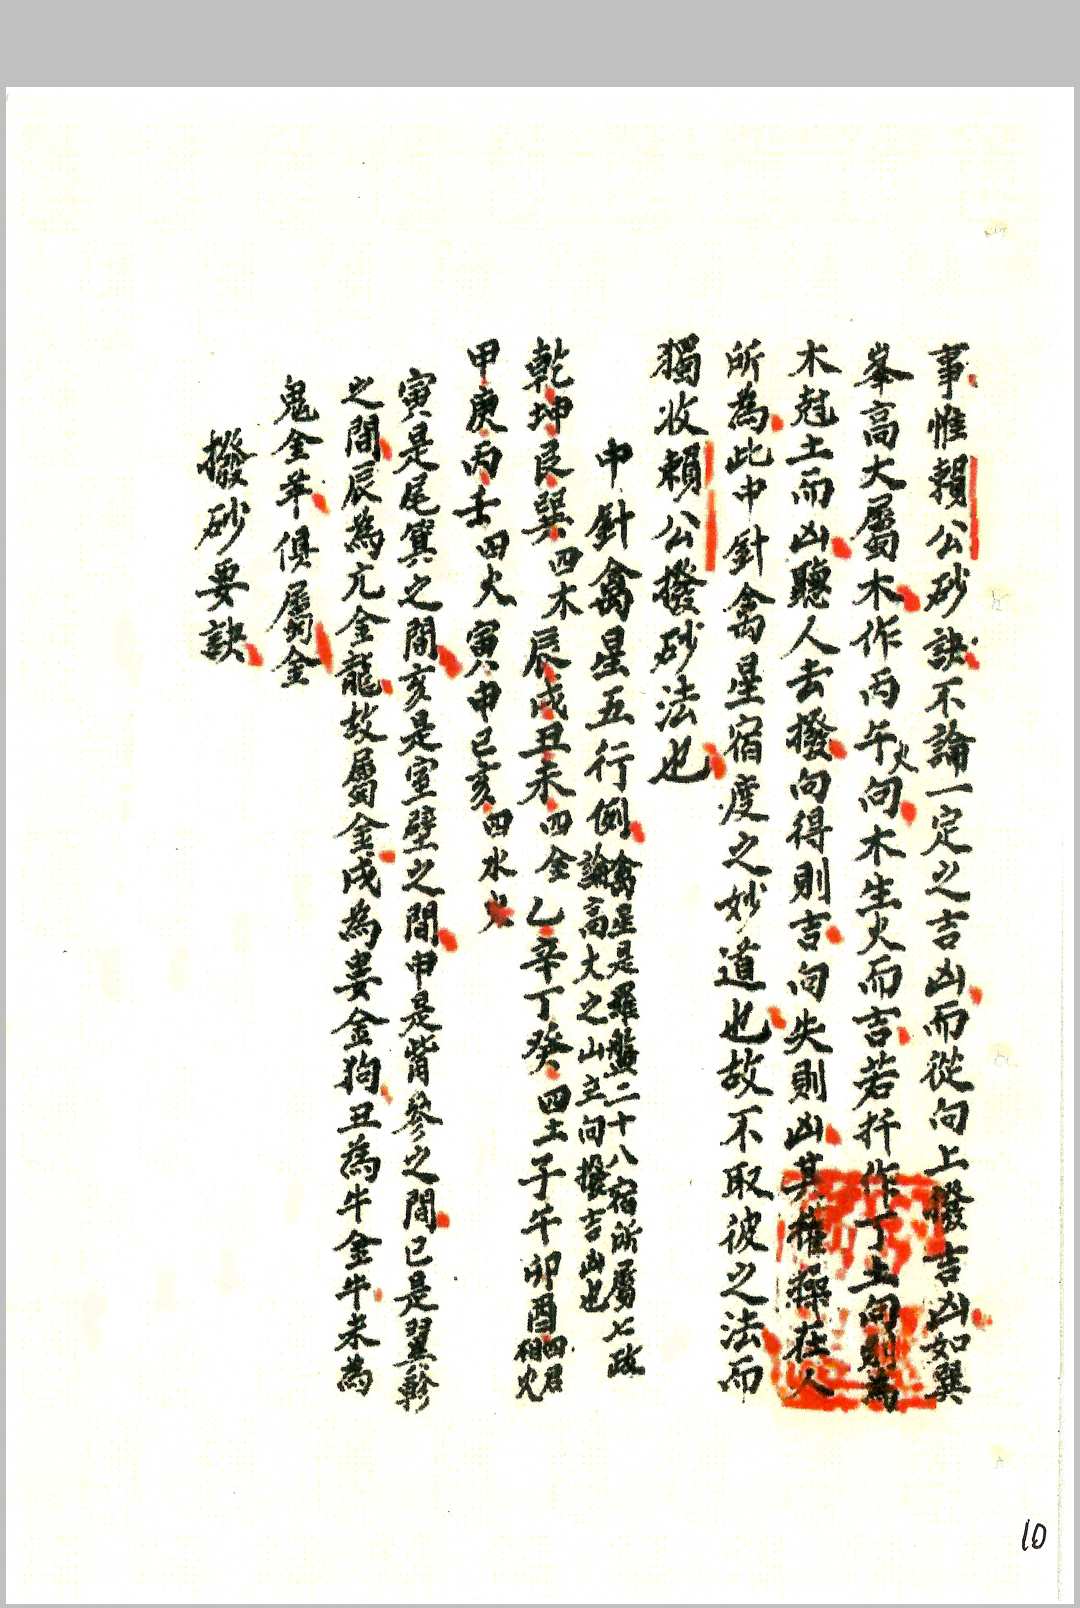 事惟賴公砂訣不論一定之吉凶而從向上撥吉凶如巽
峯高大屬木作丙午火向木生火而吉若扦作丁土向則為
木尅土而凶聽人去撥向得則吉向失則凶其權操在人
所為此中針禽星宿度之妙道也故不取彼之法而
獨收賴公撥砂法也
中針禽星五行例
禽星是羅盤二十八宿所屬七政
論高大之山立向撥吉凶也
乾坤艮巽四木辰戌丑未四金乙辛丁癸四土子午卯酉四君
相火
甲庚丙壬四火寅申巳亥四水
寅是尾箕之間亥是室壁之間申是觜參之間巳是翼軫
之間辰為亢金龍故屬金戌為婁金狗丑為牛金牛未為
鬼金羊俱屬金
撥砂要訣
10